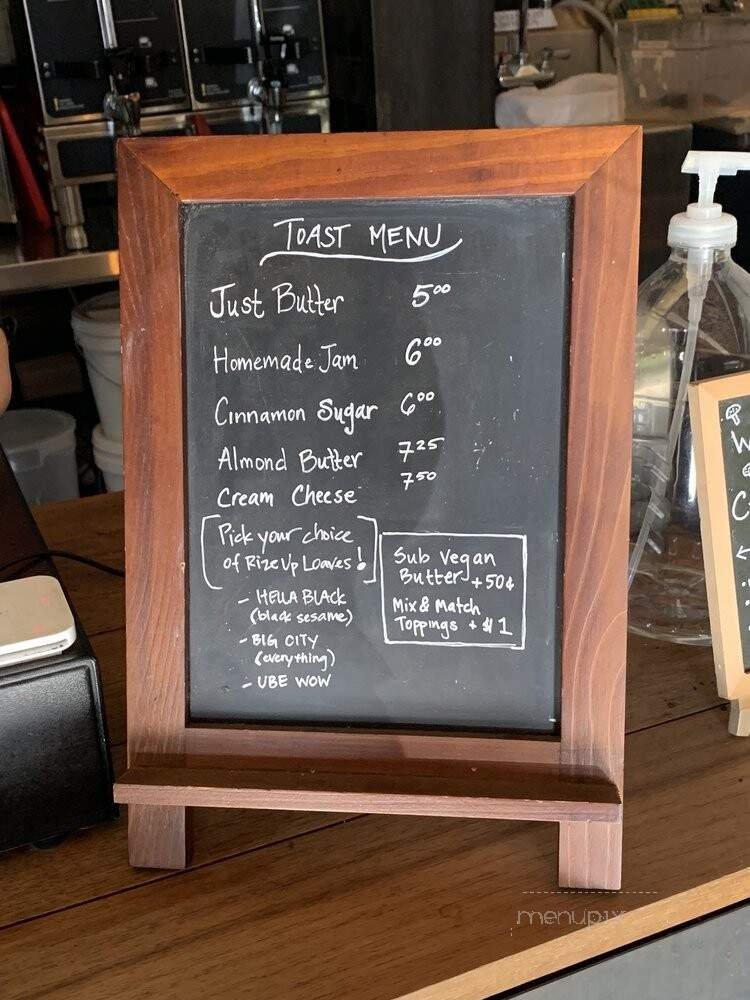 TOAST MENU
Just Butter 5⁰⁰
Homemade Jam 6⁰⁰
Cinnamon Sugar 6⁰⁰
Almond Butter 7²⁵
Cream Cheese 7⁵⁰
Pick your choice
of Rize Up Loaves!
- HELLA BLACK
(black sesame)
- BIG CITY
(everything)
- UBE WOW
Sub Vegan
Butter +50¢
Mix & Match
Toppings + $1
menupix